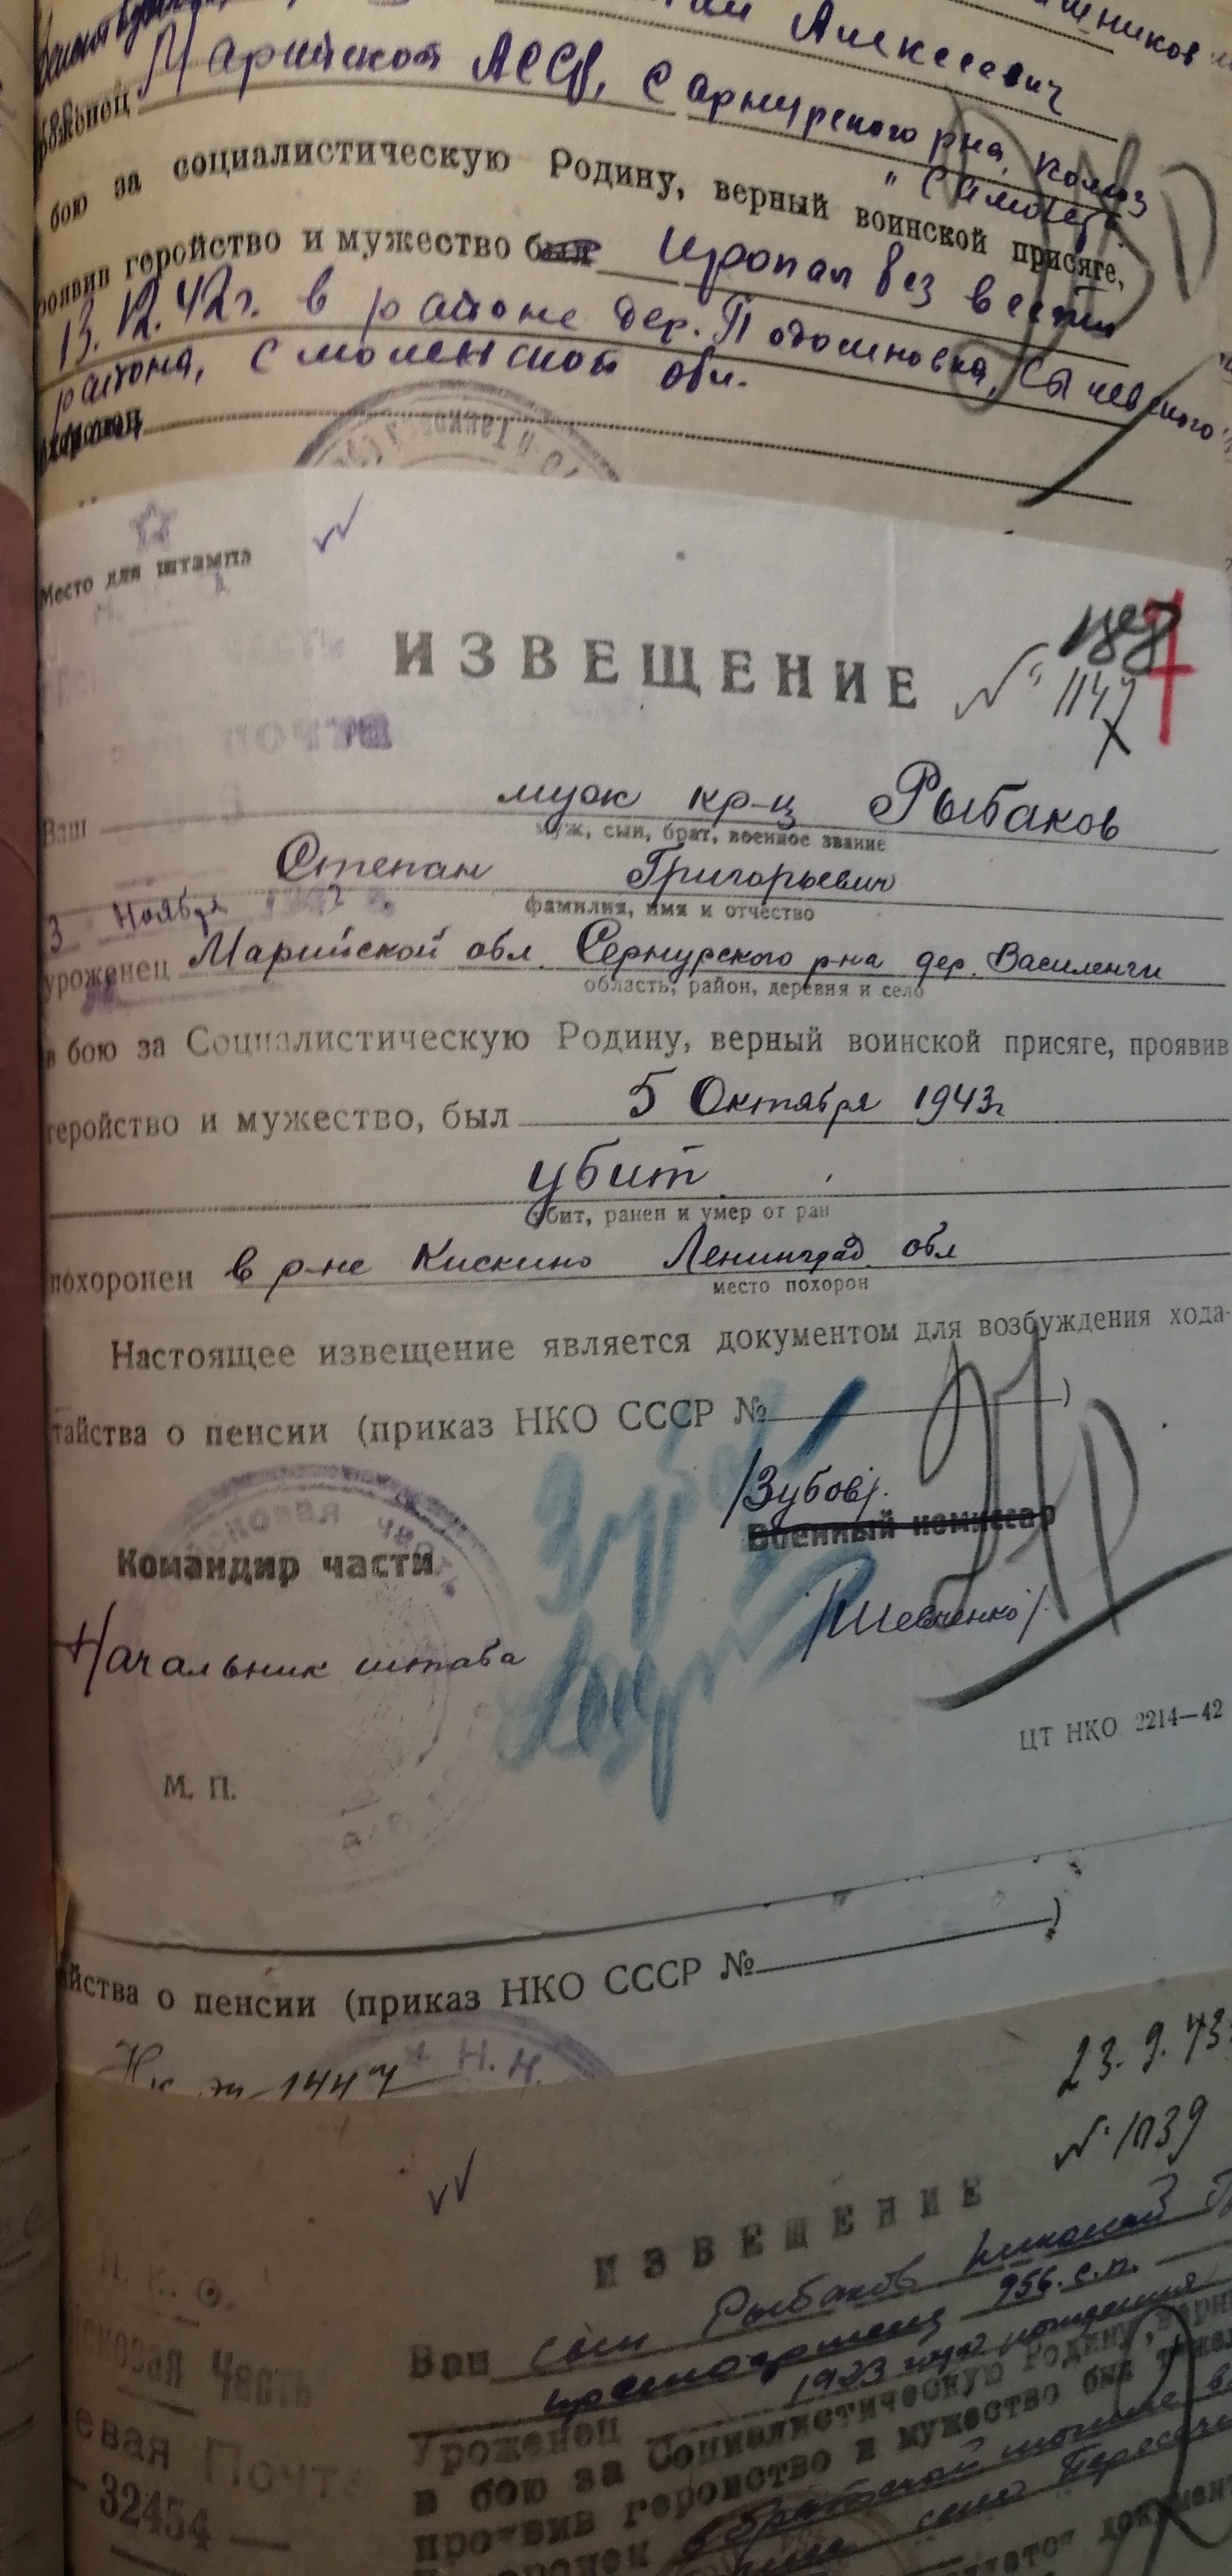 Алексеевич
Марийской АССР, Сернурского р-на, колхоз
"Самолет"
бою за социалистическую Родину, верный воинской присяге,
роявив геройство и мужество был пропал без вести
13.12.42г. в районе дер. Подосиновка, Сычевского
района, Смоленской обл.
Место для штампа
ИЗВЕЩЕНИЕ
№ 1147
Ваш муж кр-ц Рыбаков
муж, сын, брат, военное звание
Степан Григорьевич
фамилия, имя и отчество
3 Ноября
уроженец Марийской обл. Сернурского р-на дер. Василенги
область, район, деревня и село
в бою за Социалистическую Родину, верный воинской присяге, проявив
геройство и мужество, был 5 Октября 1943г
убит
убит, ранен и умер от ран
похоронен в р-не Кискино Ленинград. обл
место похорон
Настоящее извещение является документом для возбуждения хода-
тайства о пенсии (приказ НКО СССР № )
/Зубов/.
Командир части Военный комиссар
Начальник штаба /Шевченко/.
ЦТ НКО 2214—42
М. П.
айства о пенсии (приказ НКО СССР № )
Н.
23.9.43
№ 1039
ИЗВЕЩЕНИЕ
Н. К. О.
Ваш сын Рыбаков Николай
красноармеец 956 с.п.
1923 года рождения
Уроженец
в бою за Социалистическую Родину, верный
проявив геройство и мужество был
в братской могиле
село
евая Почта
32454 —